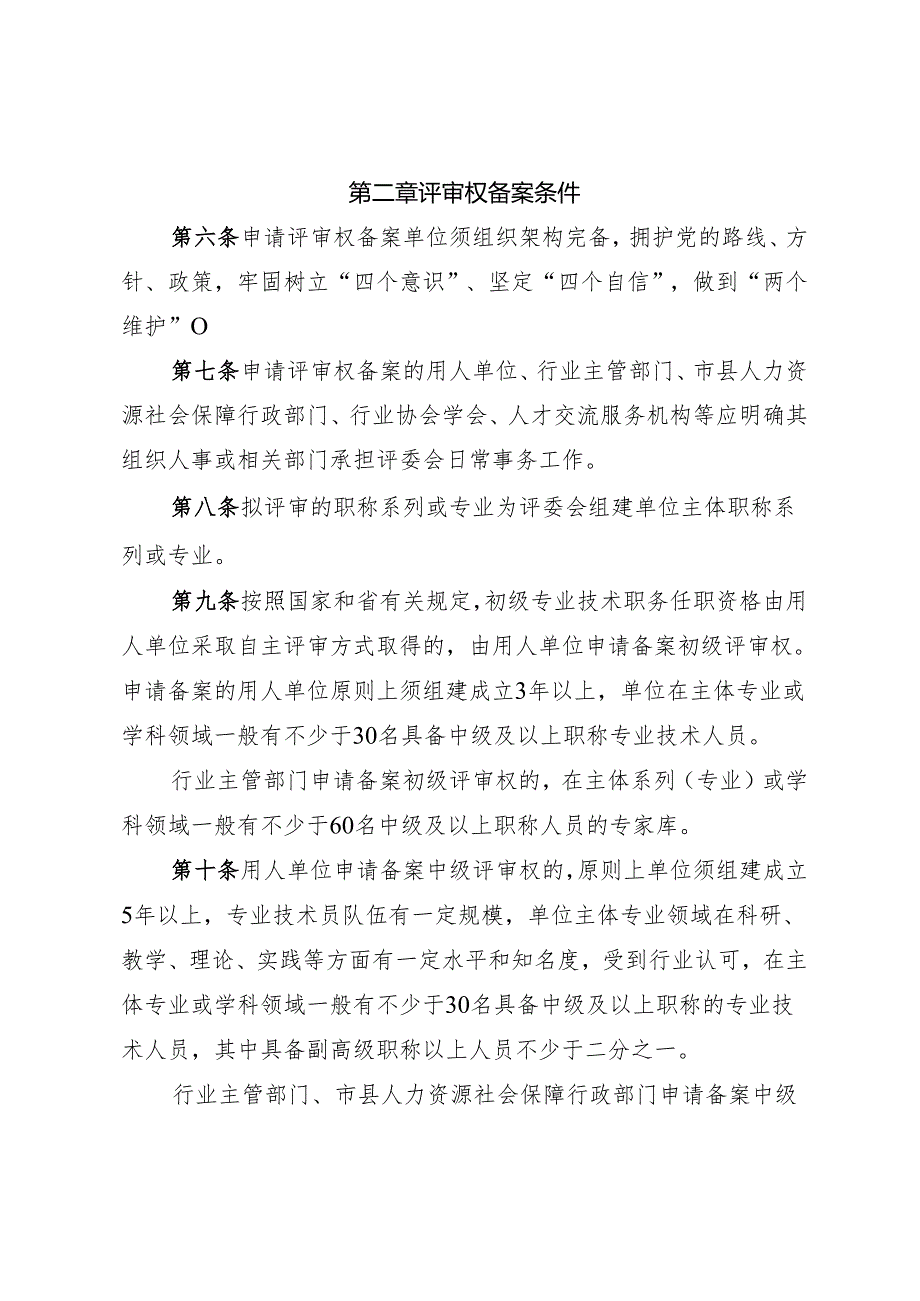 第二章评审权备案条件
第六条申请评审权备案单位须组织架构完备，拥护党的路线、方
针、政策，牢固树立“四个意识”、坚定“四个自信”，做到“两个
维护”O
第七条申请评审权备案的用人单位、行业主管部门、市县人力资
源社会保障行政部门、行业协会学会、人才交流服务机构等应明确其
组织人事或相关部门承担评委会日常事务工作。
第八条拟评审的职称系列或专业为评委会组建单位主体职称系
列或专业。
第九条按照国家和省有关规定，初级专业技术职务任职资格由用
人单位采取自主评审方式取得的，由用人单位申请备案初级评审权。
申请备案的用人单位原则上须组建成立3年以上，单位在主体专业或
学科领域一般有不少于30名具备中级及以上职称专业技术人员。
行业主管部门申请备案初级评审权的，在主体系列（专业）或学
科领域一般有不少于60名中级及以上职称人员的专家库。
第十条用人单位申请备案中级评审权的，原则上单位须组建成立
5年以上，专业技术员队伍有一定规模，单位主体专业领域在科研、
教学、理论、实践等方面有一定水平和知名度，受到行业认可，在主
体专业或学科领域一般有不少于30名具备中级及以上职称的专业技
术人员，其中具备副高级职称以上人员不少于二分之一。
行业主管部门、市县人力资源社会保障行政部门申请备案中级